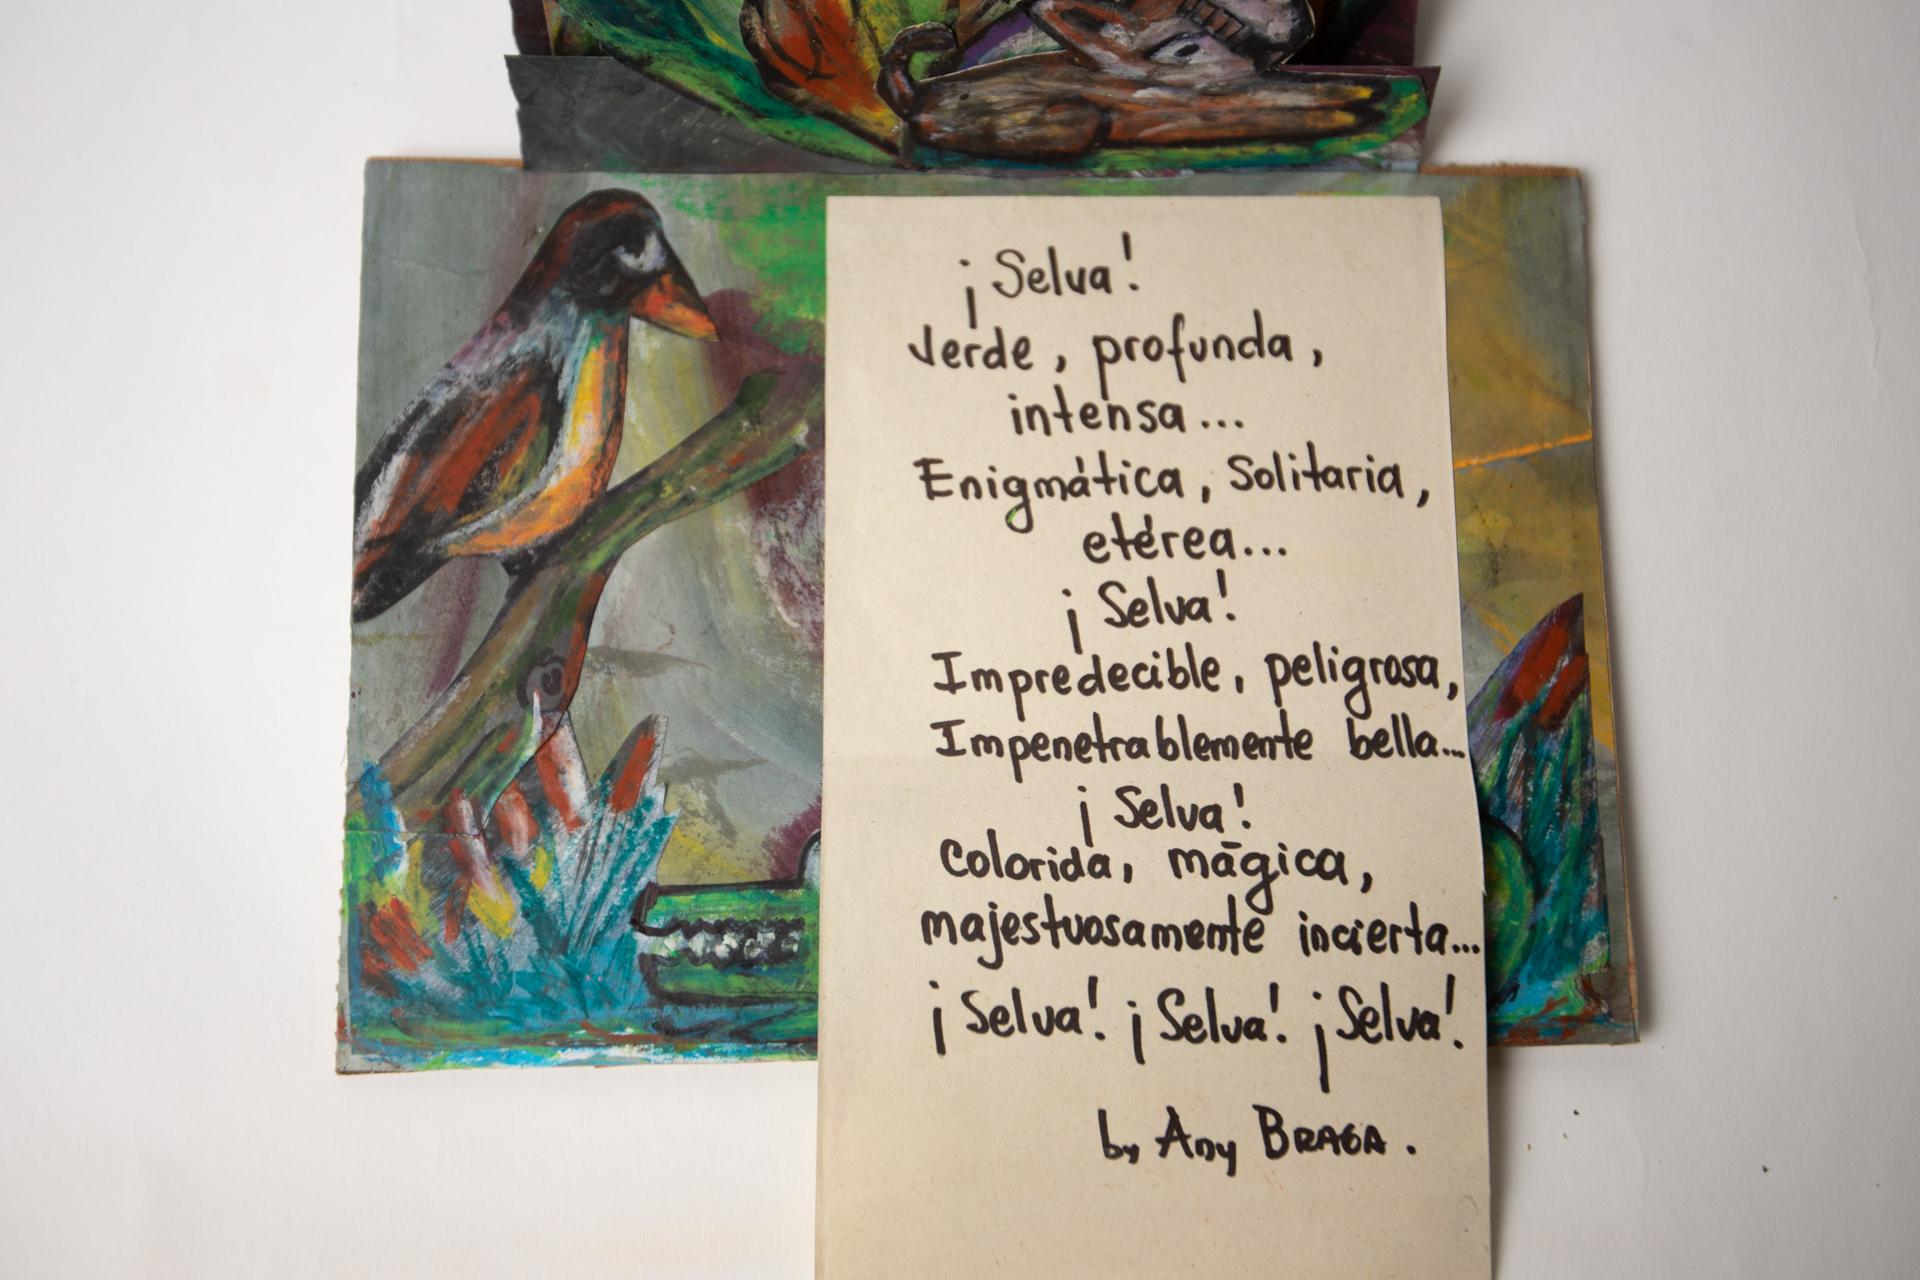 ¡Selva!
Verde, profunda,
intensa...
Enigmática, Solitaria,
etérea...
¡Selva!
Impredecible, peligrosa,
Impenetrablemente bella...
¡Selva!
Colorida, mágica,
majestuosamente incierta...
¡Selva! ¡Selva! ¡Selva!
by Any BRAGA.